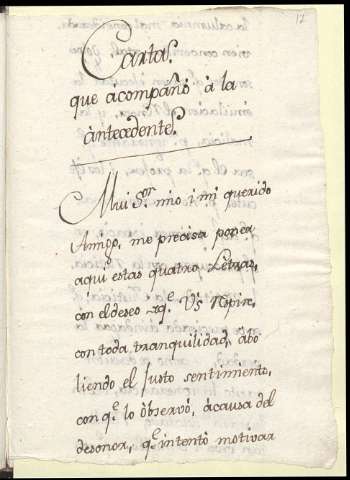 17
Carta
que acompañó à la
àntecedente.
Mui S.or mio i mi querido
Amigo, me precisa poner
aqui estas quatro Letras,
con el deseo de q.e Vs Rspire,
con toda tranquilidad, abo
liendo el justo sentimiento,
con q.e lo observó, àcausa del
desonor, q.e intentó motivar